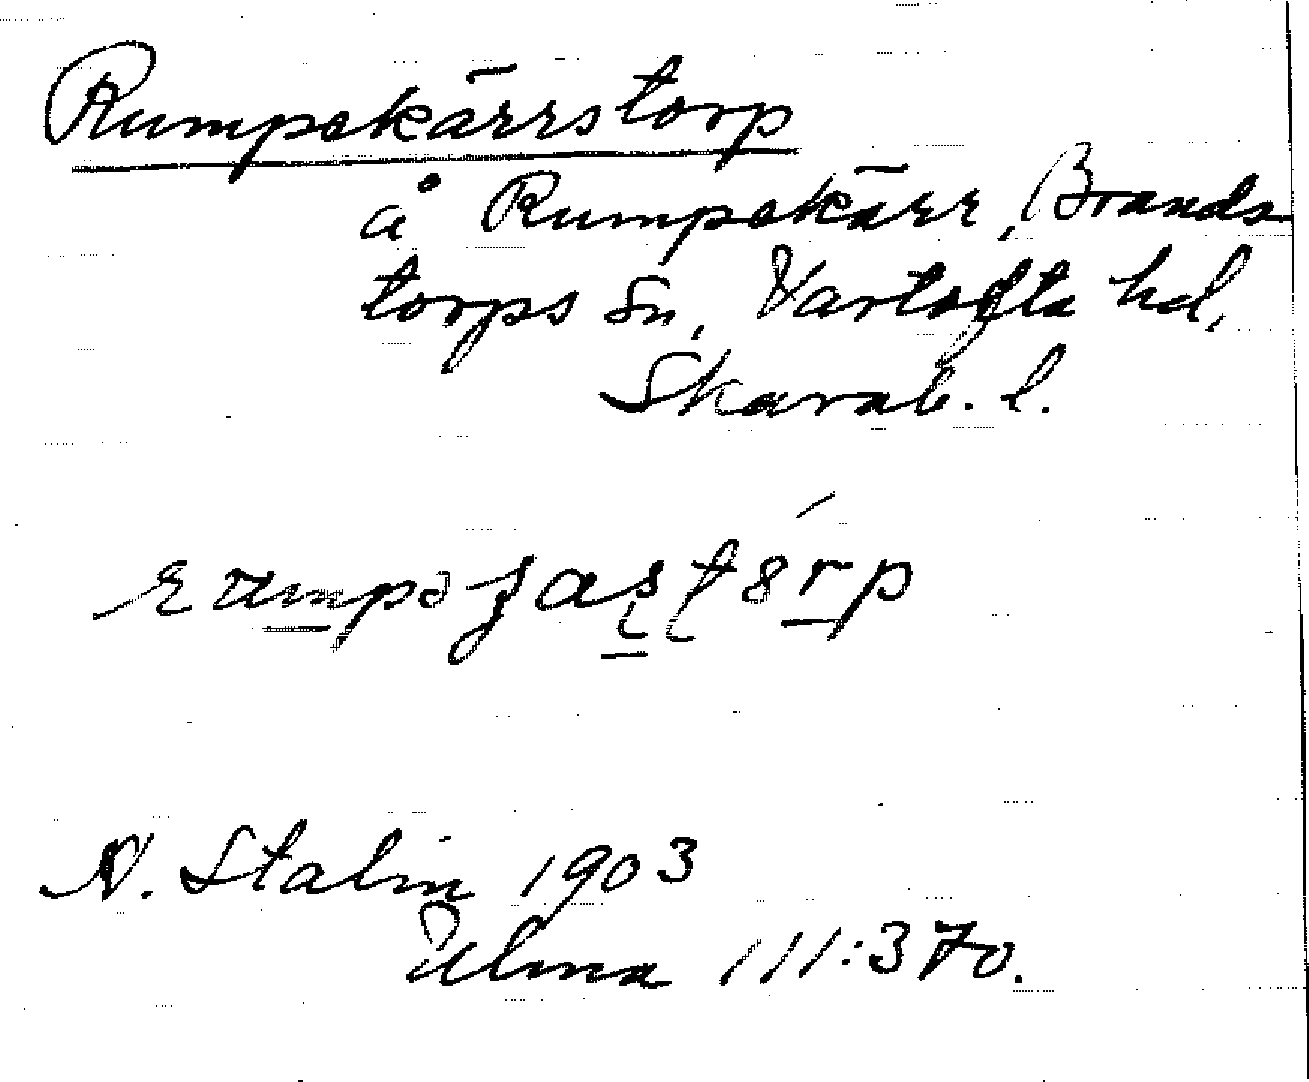 Rumpekärrstorp
å Rumpekärr, Brands
torps sn, Vartofta hd,
Skarab. l.
N. Stalin 1903
Ulma 111:370.